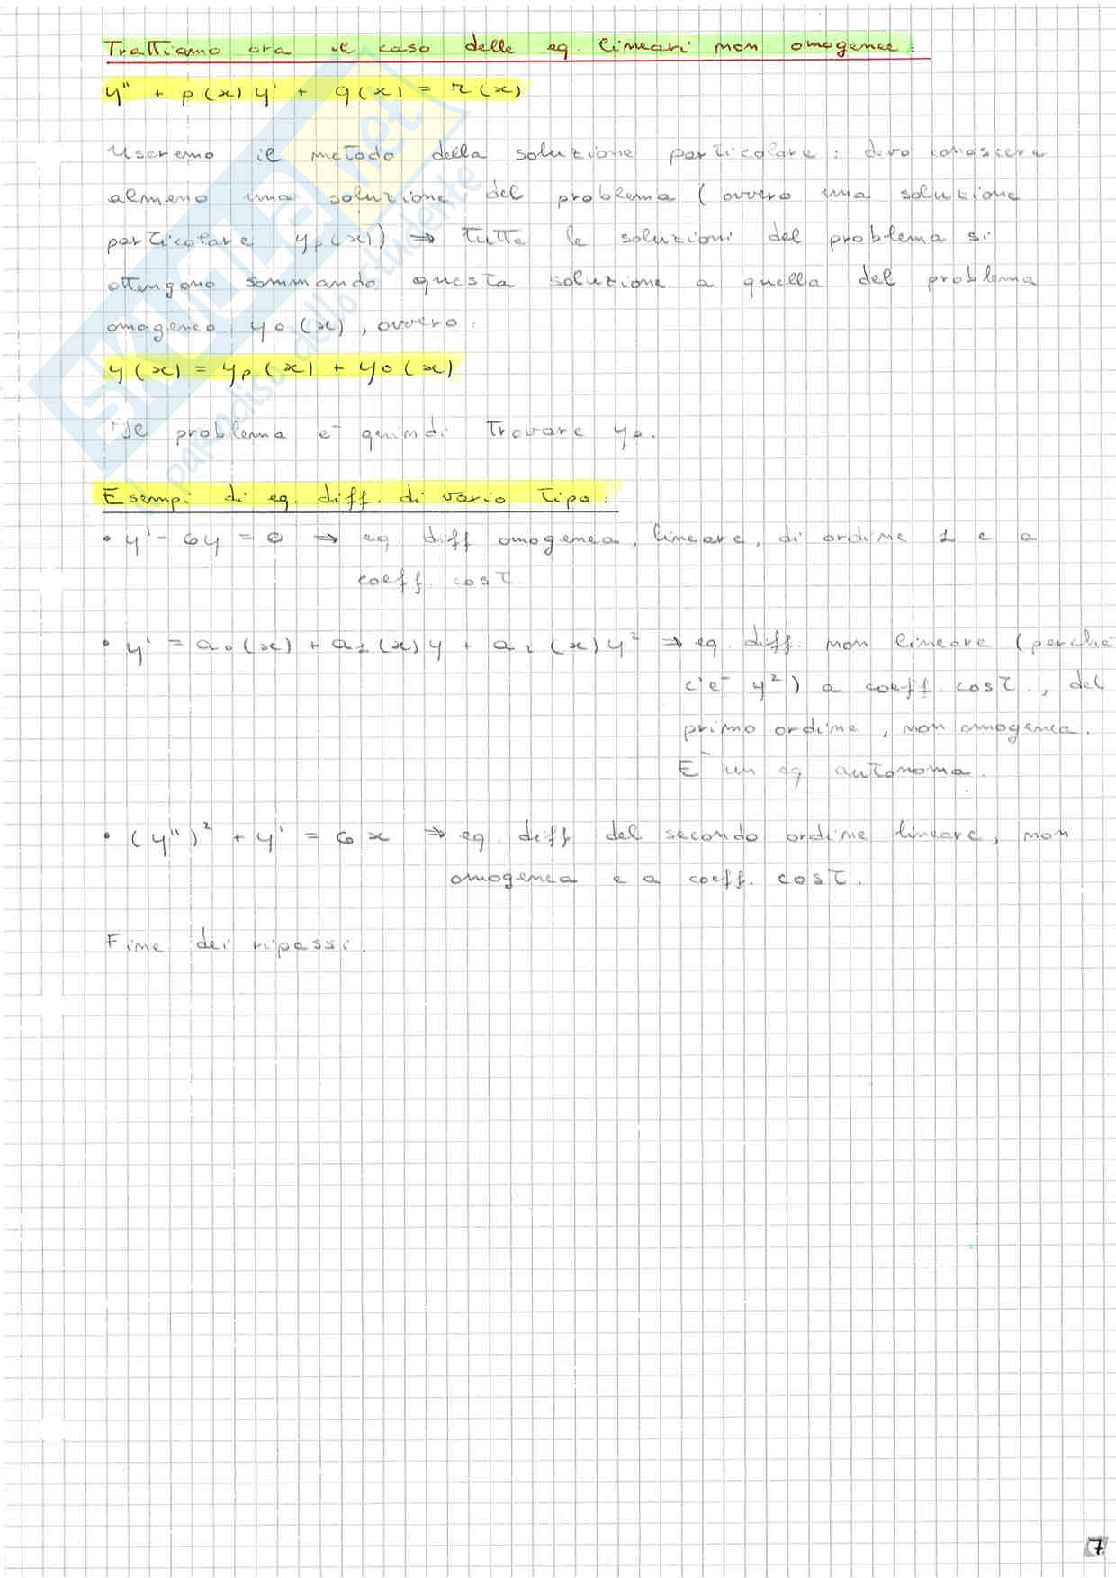 Trattiamo ora il caso delle eq. lineari non omogenee:
y'' + p(x)y' + q(x) = r(x)
Useremo il metodo della soluzione particolare: devo conoscere
almeno una soluzione del problema (ovvero una soluzione
particolare yp(x)) ⇒ tutte le soluzioni del problema si
ottengono sommando questa soluzione a quella del problema
omogeneo yo(x), ovvero:
y(x) = yp(x) + yo(x)
Il problema e' quindi trovare yp.
Esempi di eq. diff. di vario tipo:
• y' - 6y = 0 ⇒ eq diff omogenea, lineare, di ordine 1 e a
coeff. cost.
• y' = a0(x) + a1(x)y + a2(x)y² ⇒ eq. diff. non lineare (perche'
c'e' y²) a coeff. cost., del
primo ordine, non omogenea.
E' un eq autonoma.
• (y'')² + y' = 6x ⇒ eq. diff del secondo ordine lineare, non
omogenea e a coeff. cost.
Fine dei ripassi.
7
SKUOLA.net
paradiso dello studente